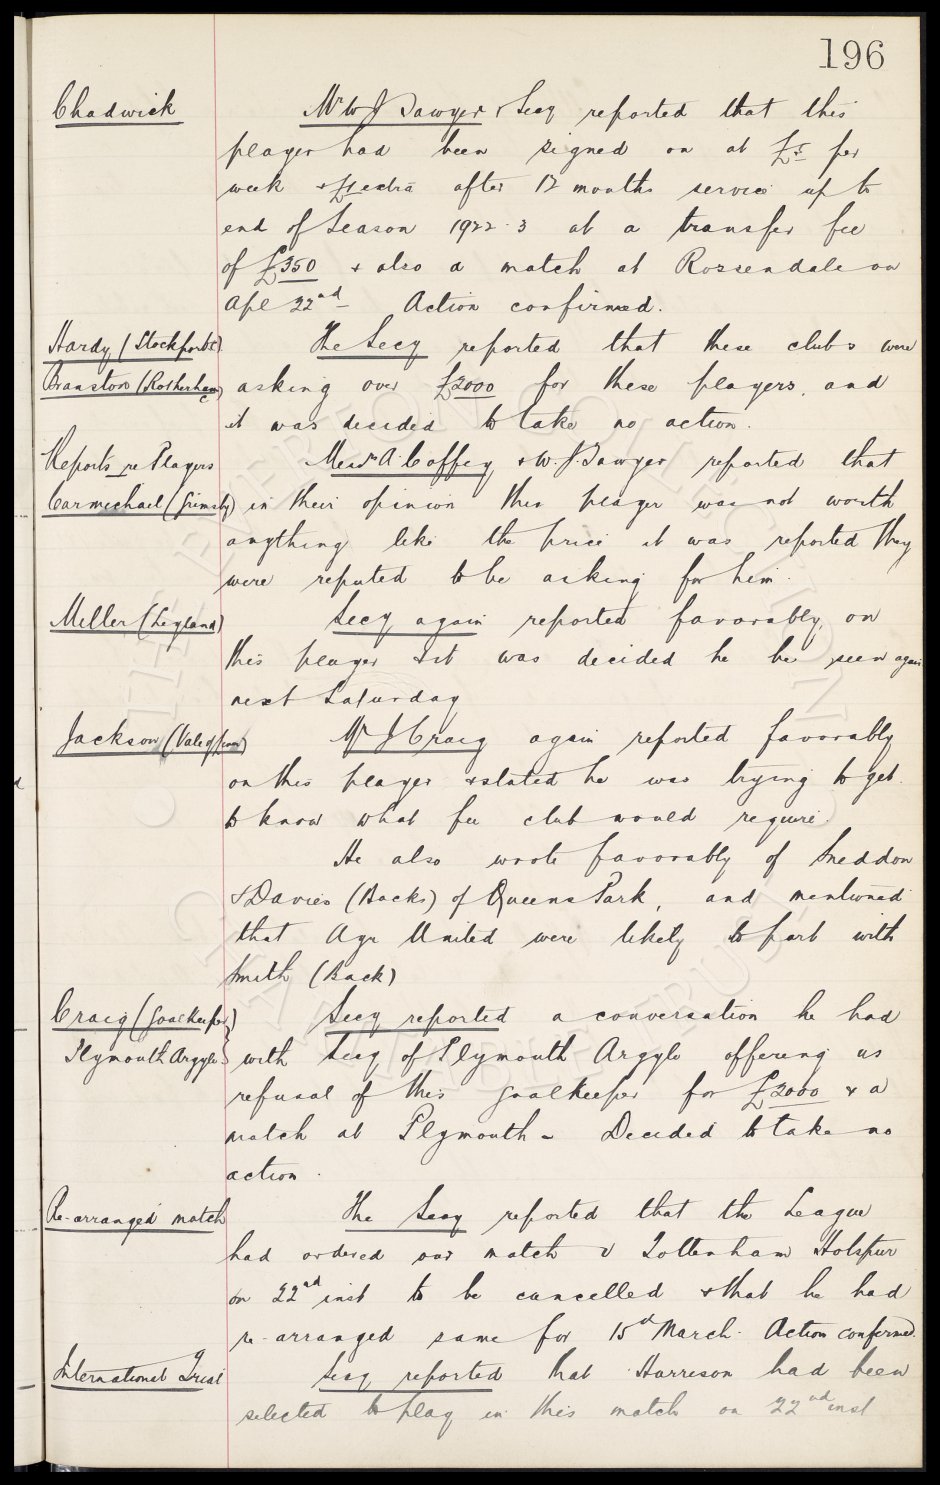 196
Chadwick Mr W J Sawyer & Secy reported that this
player had been signed on at £5 per
week & £1 extra after 12 months service up to
end of Season 1922-3 at a transfer fee
of £350 & also a match at Rossendale on
Apl 22nd - Action confirmed.
Hardy (Stockport C) The Secy reported that these clubs were
Branston (Rotherham C) asking over £2000 for these players, and
it was decided to take no action.
Reports re Players Messrs A. Coffey & W. J. Sawyer reported that
Carmichael (Grimsby) in their opinion this player was not worth
anything like the price it was reported they
were reputed to be asking for him.
Miller (Leyland) Secy again reported favorably on
this player & it was decided he be seen again
next Saturday
Jackson (Vale of Leven) Mr J Craig again reported favorably
on this player & stated he was trying to get
to know what fee club would require.
He also wrote favorably of Sneddon
& Davies (Backs) of Queens Park, and mentioned
that Ayr United were likely to part with
Smith (Back)
Craig (Goalkeeper) Secy reported a conversation he had
Plymouth Argyle with Secy of Plymouth Argyle offering us
refusal of this goalkeeper for £2000 & a
match at Plymouth - Decided to take no
action.
Re-arranged match The Secy reported that the League
had ordered our match v Tottenham Hotspur
on 22nd inst to be cancelled & that he had
re-arranged same for 15th March. Action confirmed.
International Trial Secy reported that Harrison had been
selected to play in this match on 22nd inst